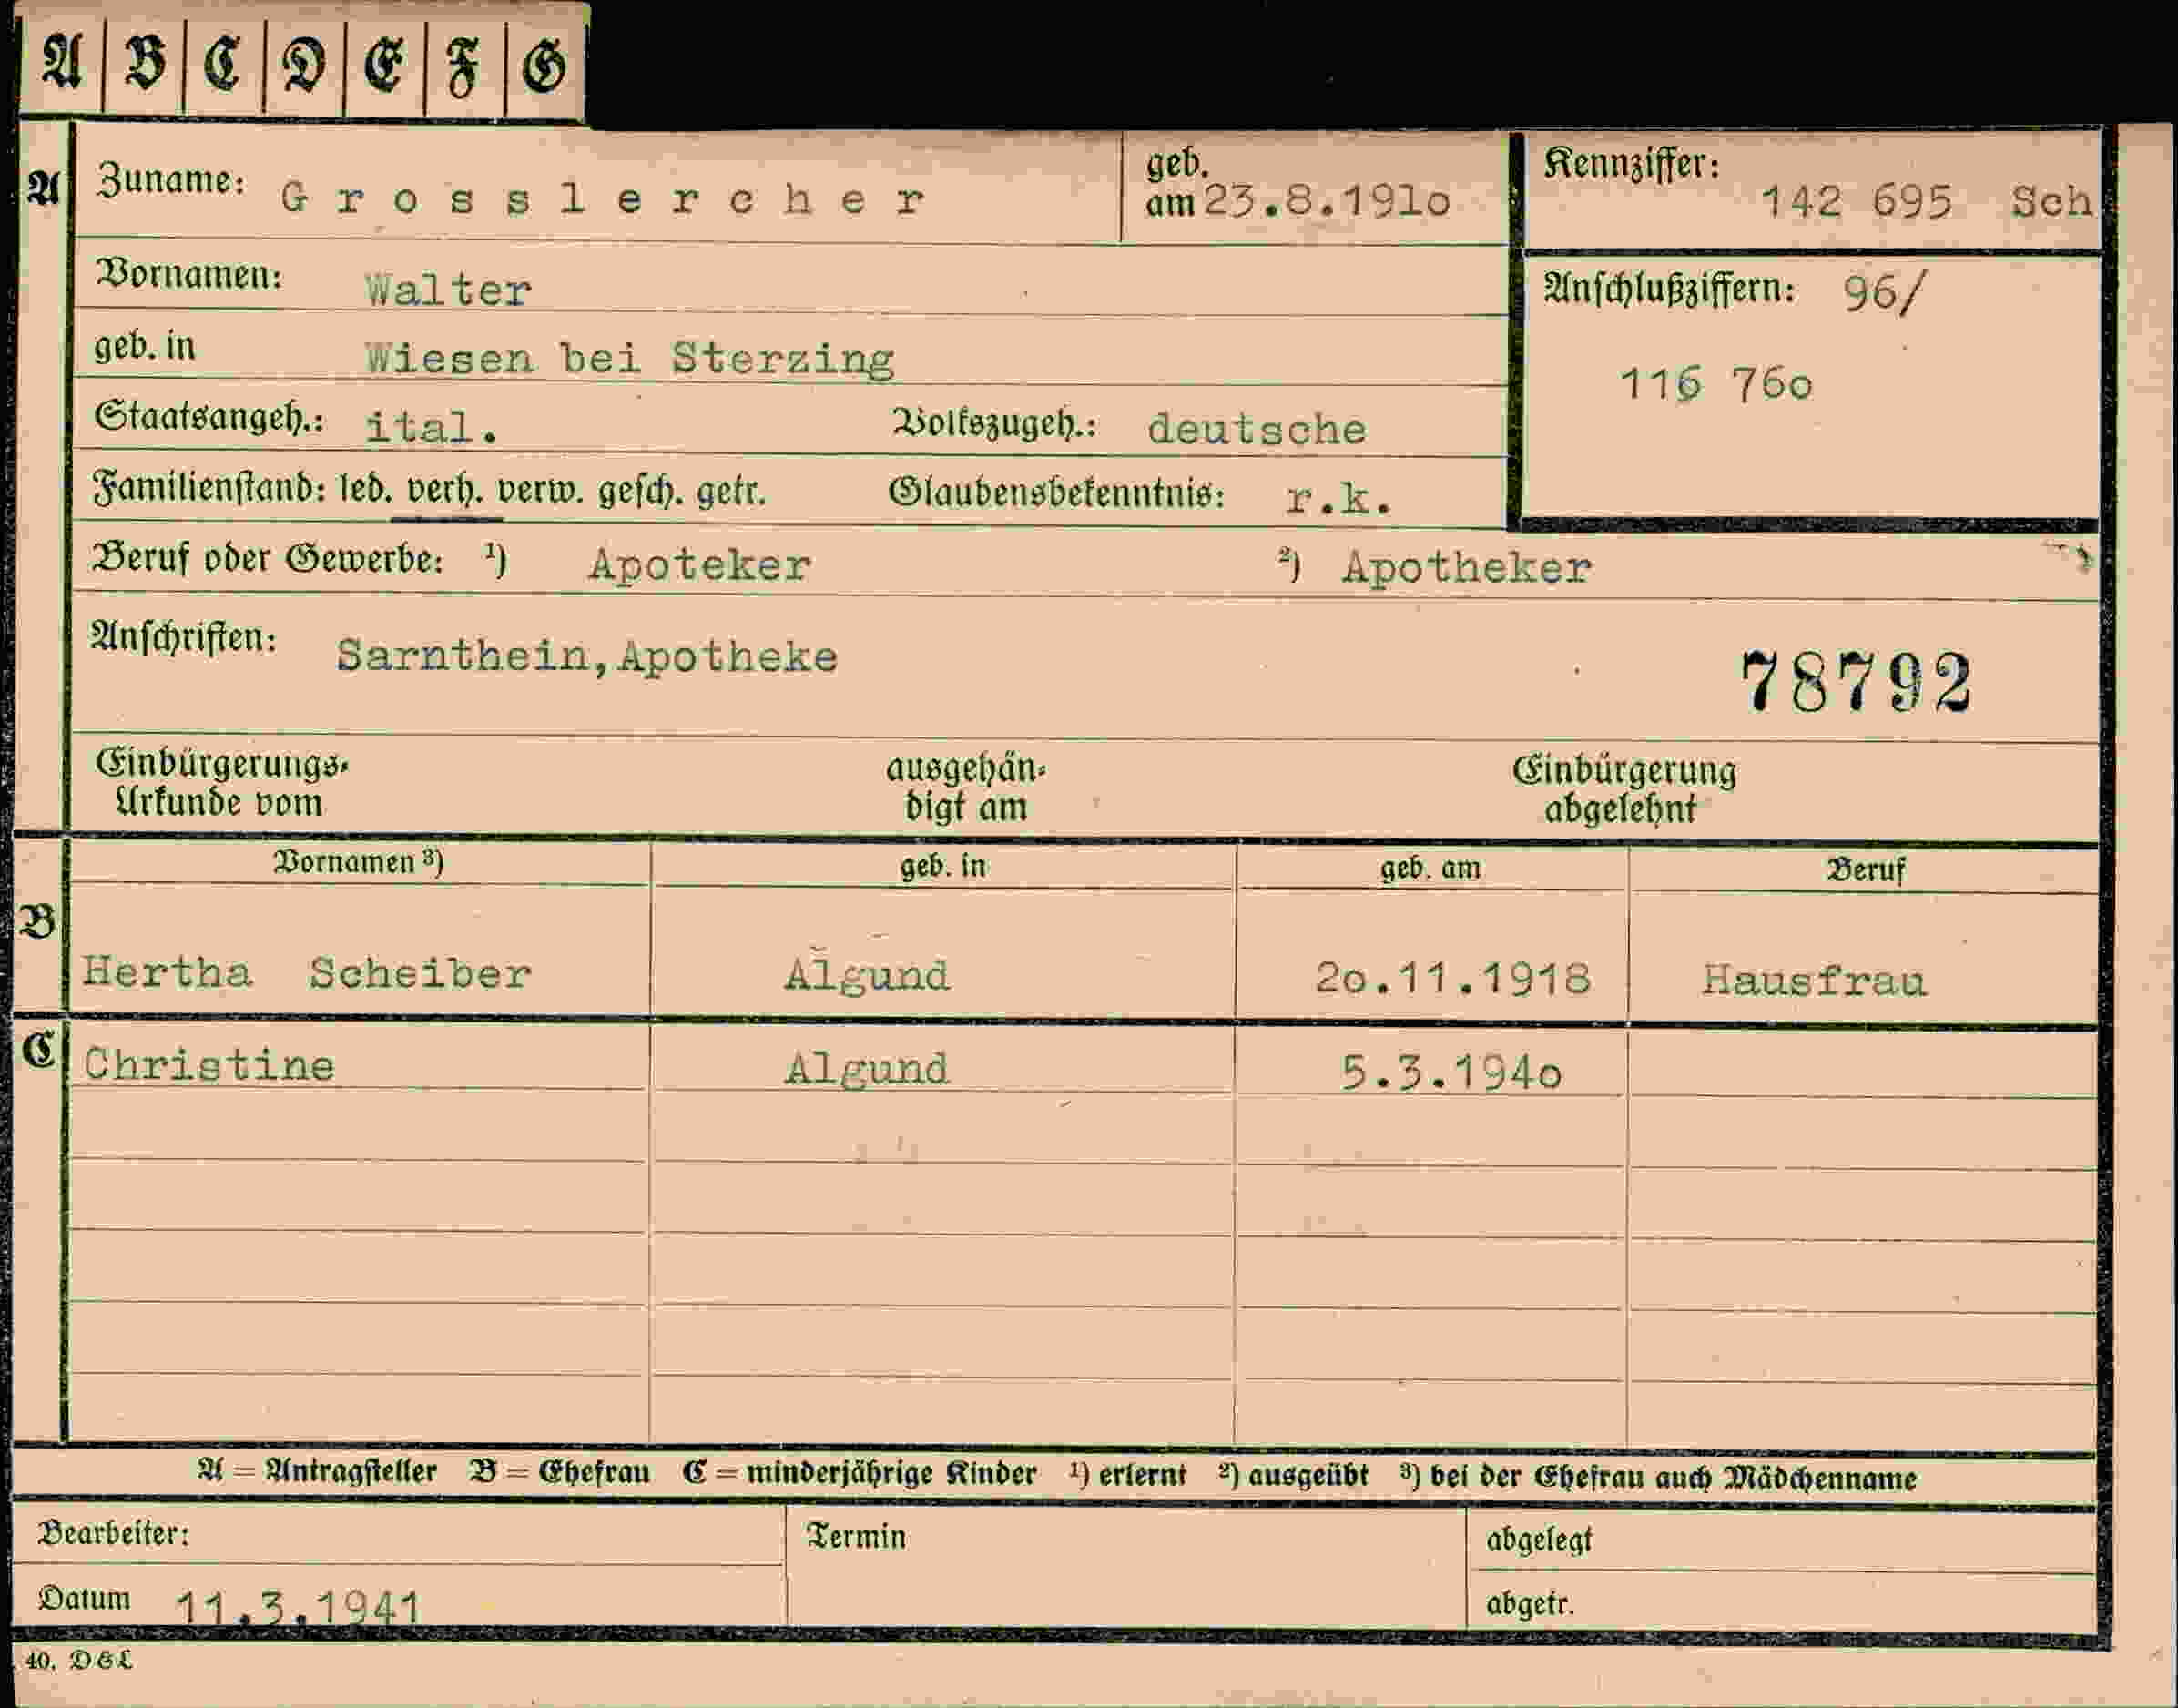 A B C D E F G
A Zuname: Grosslercher geb. am 23.8.191o Kennziffer: 142 695 Sch
Vornamen: Walter Anschlußziffern: 96/
geb. in Wiesen bei Sterzing 116 76o
Staatsangeh.: ital. Volkszugeh.: deutsche
Familienstand: led. verh. verw. gesch. getr. Glaubensbekenntnis: r.k.
Beruf oder Gewerbe: ¹) Apoteker ²) Apotheker
Anschriften: Sarnthein,Apotheke 78792
Einbürgerungs- ausgehän- Einbürgerung
Urkunde vom digt am abgelehnt
Vornamen ³) geb. in geb. am Beruf
B
Hertha Scheiber Algund 2o.11.1918 Hausfrau
C Christine Algund 5.3.194o
A = Antragsteller B = Ehefrau C = minderjährige Kinder ¹) erlernt ²) ausgeübt ³) bei der Ehefrau auch Mädchenname
Bearbeiter: Termin abgelegt
Datum 11.3.1941 abgetr.
40. DGL